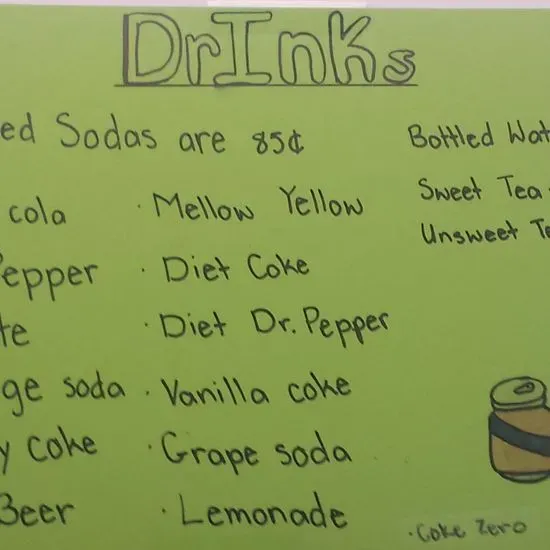 DrInks
ed Sodas are 85¢
cola
epper
te
ge soda
y coke
Beer
· Mellow Yellow
· Diet Coke
· Diet Dr. Pepper
· Vanilla coke
· Grape soda
· Lemonade
Bottled Wat
Sweet Tea
Unsweet Te
· Coke Zero